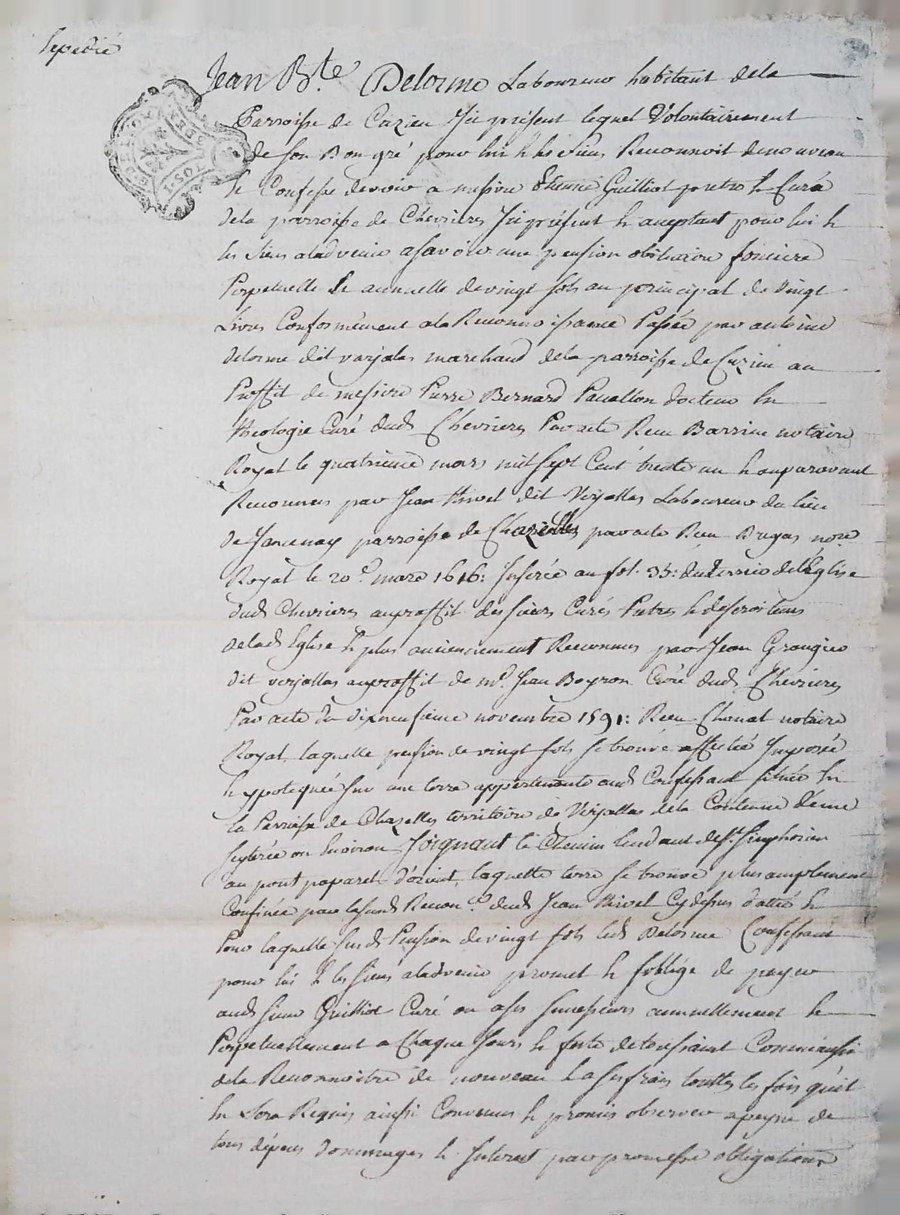 Expedié
Jean Bte Delorme Laboureur habitant dela
Parroisse de Cuzieu Icy présent lequel Volontairement
de son Bon gré pour lui & les siens Reconnoit denouveau
& Confesse devoir a messire Etienne Guilliot pretre & Curé
dela parroisse de Chevrieres Icy présent & aceptant pour lui &
les siens aladvenir asavoir une pension obituaire fonciere
Perpetuelle & annuelle de vingt sols au principal de Vingt
Livres Conformément ala Reconnoissance Passée par antoine
delorme dit verjalas marchand dela parroisse de Cuzieu au
Proffit de messire Pierre Bernard Pauallon docteur En
theologie Curé dud Chevrieres Par acte Receu Barrieu notaire
Royal le quatrieme mars mil sept Cent trente un & auparavant
Reconnues par Jean thivel dit Verjallas Laboureur du lieu
de Jancenay parroisse de Chazelles par acte Receu Dugas nore
Royal le 20e. mars 1616: Inserée au fol. 35: du terrier de l'Église
dud Chevrieres auproffit des sieurs Curés Pretres & deserviteurs
delad Eglise & plus anciennement Reconnues par Jean Grangier
dit verjallas auproffit de mre. Jean Boyron Curé dud Chevrieres
Par acte du dixneufieme novembre 1591: Receu Chonat notaire
Royal laquelle pension de vingt sols se trouve affectée Imposée
& ypotequée sur une terre appartenante aud Confessant située En
la Parroisse de Chazelles territoire de Verjallas dela Contenue d'une
seyterée ou Environ Joignant le Chemin tendant de St. Simphorien
au pont paparet d'orient, laquelle terre se trouve plus amplement
Confinée par lasusd Recon.ce dud Jean thivel Cydessus d'attée &
Pour laquelle susd Pension de vingt sols led Delorme Confessant
pour lui & les siens aladvenir promet & soblige de payer
aud sieur Guilliot Curé ou a ses successeurs annuellement &
Perpetuellement a Chaque Jours & feste de toussaint Comme aussi
dela Reconnoitre de nouveau & a ses frais touttes les fois qu'il
En sera Requis ainsi Convenus & promis observer apeyne de
tous dépens dommages & Interest par promesse obligations